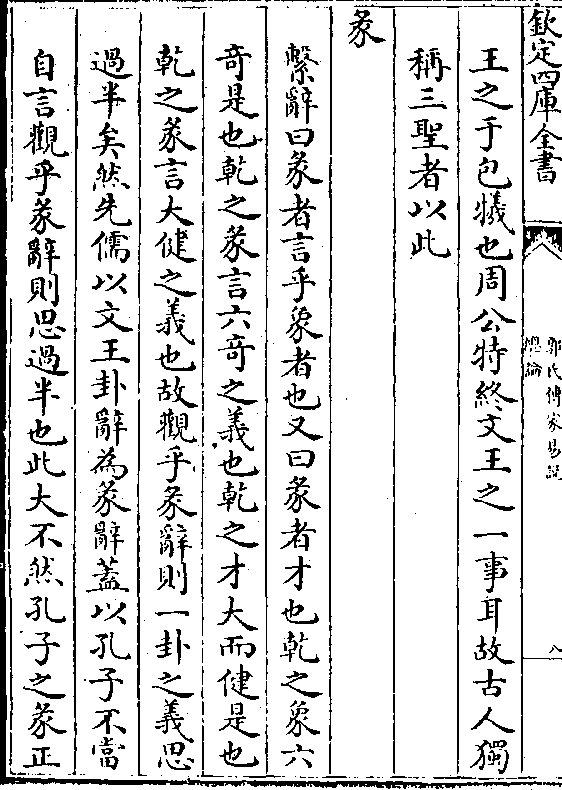 欽定四庫全書
郭氏傳家易說
總論
八
王之于包犧也周公特終文王之一事耳故古人獨
稱三聖者以此
彖
繫辭曰彖者言乎象者也又曰彖者才也乾之象六
奇是也乾之彖言六奇之義也乾之才大而健是也
乾之彖言大健之義也故觀乎彖辭則一卦之義思
過半矣然先儒以文王卦辭為彖辭蓋以孔子不當
自言觀乎彖辭則思過半也此大不然孔子之彖正